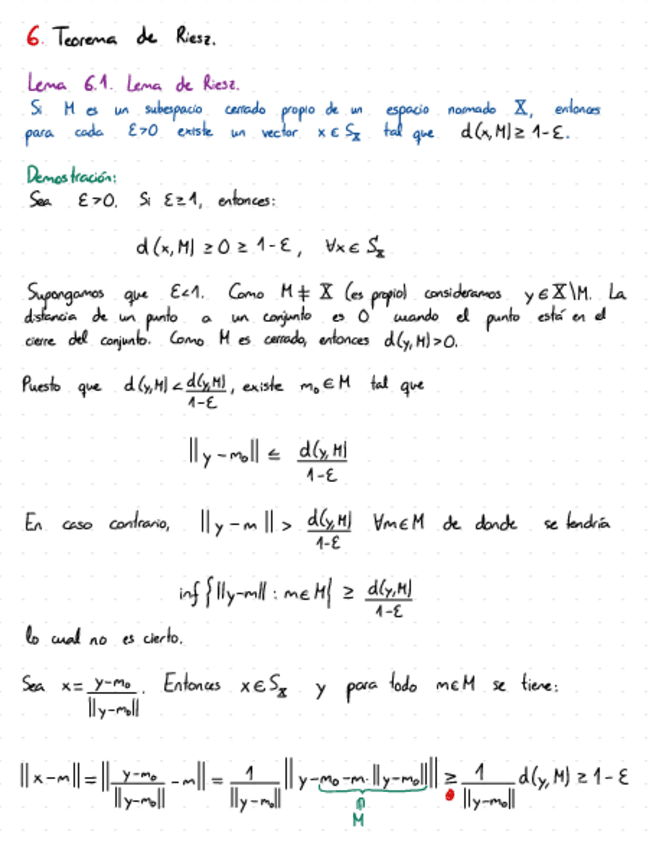 6. Teorema de Riesz.
Lema 6.1. Lema de Riesz.
Si M es un subespacio cerrado propio de un espacio normado X, entonces
para cada ε>0 existe un vector x ∈ S_X tal que d(x,M) ≥ 1-ε.
Demostración:
Sea ε>0. Si ε≥1, entonces:
d(x,M) ≥ 0 ≥ 1-ε, ∀x ∈ S_X
Supongamos que ε<1. Como M ≠ X (es propio) consideramos y ∈ X\M. La
distancia de un punto a un conjunto es 0 cuando el punto está en el
cierre del conjunto. Como M es cerrado, entonces d(y,M)>0.
Puesto que d(y,M) < d(y,M)/(1-ε), existe m₀ ∈ M tal que
||y-m₀|| ≤ d(y,M)/(1-ε)
En caso contrario, ||y-m|| > d(y,M)/(1-ε) ∀m∈M de donde se tendría
inf{||y-m|| : m∈M} ≥ d(y,M)/(1-ε)
lo cual no es cierto.
Sea x = (y-m₀)/||y-m₀||. Entonces x ∈ S_X y para todo m∈M se tiene:
||x-m|| = ||(y-m₀)/||y-m₀|| - m|| = 1/||y-m₀|| ||y-m₀-m·||y-m₀|||| ≥ 1/||y-m₀|| d(y,M) ≥ 1-ε
∩
M